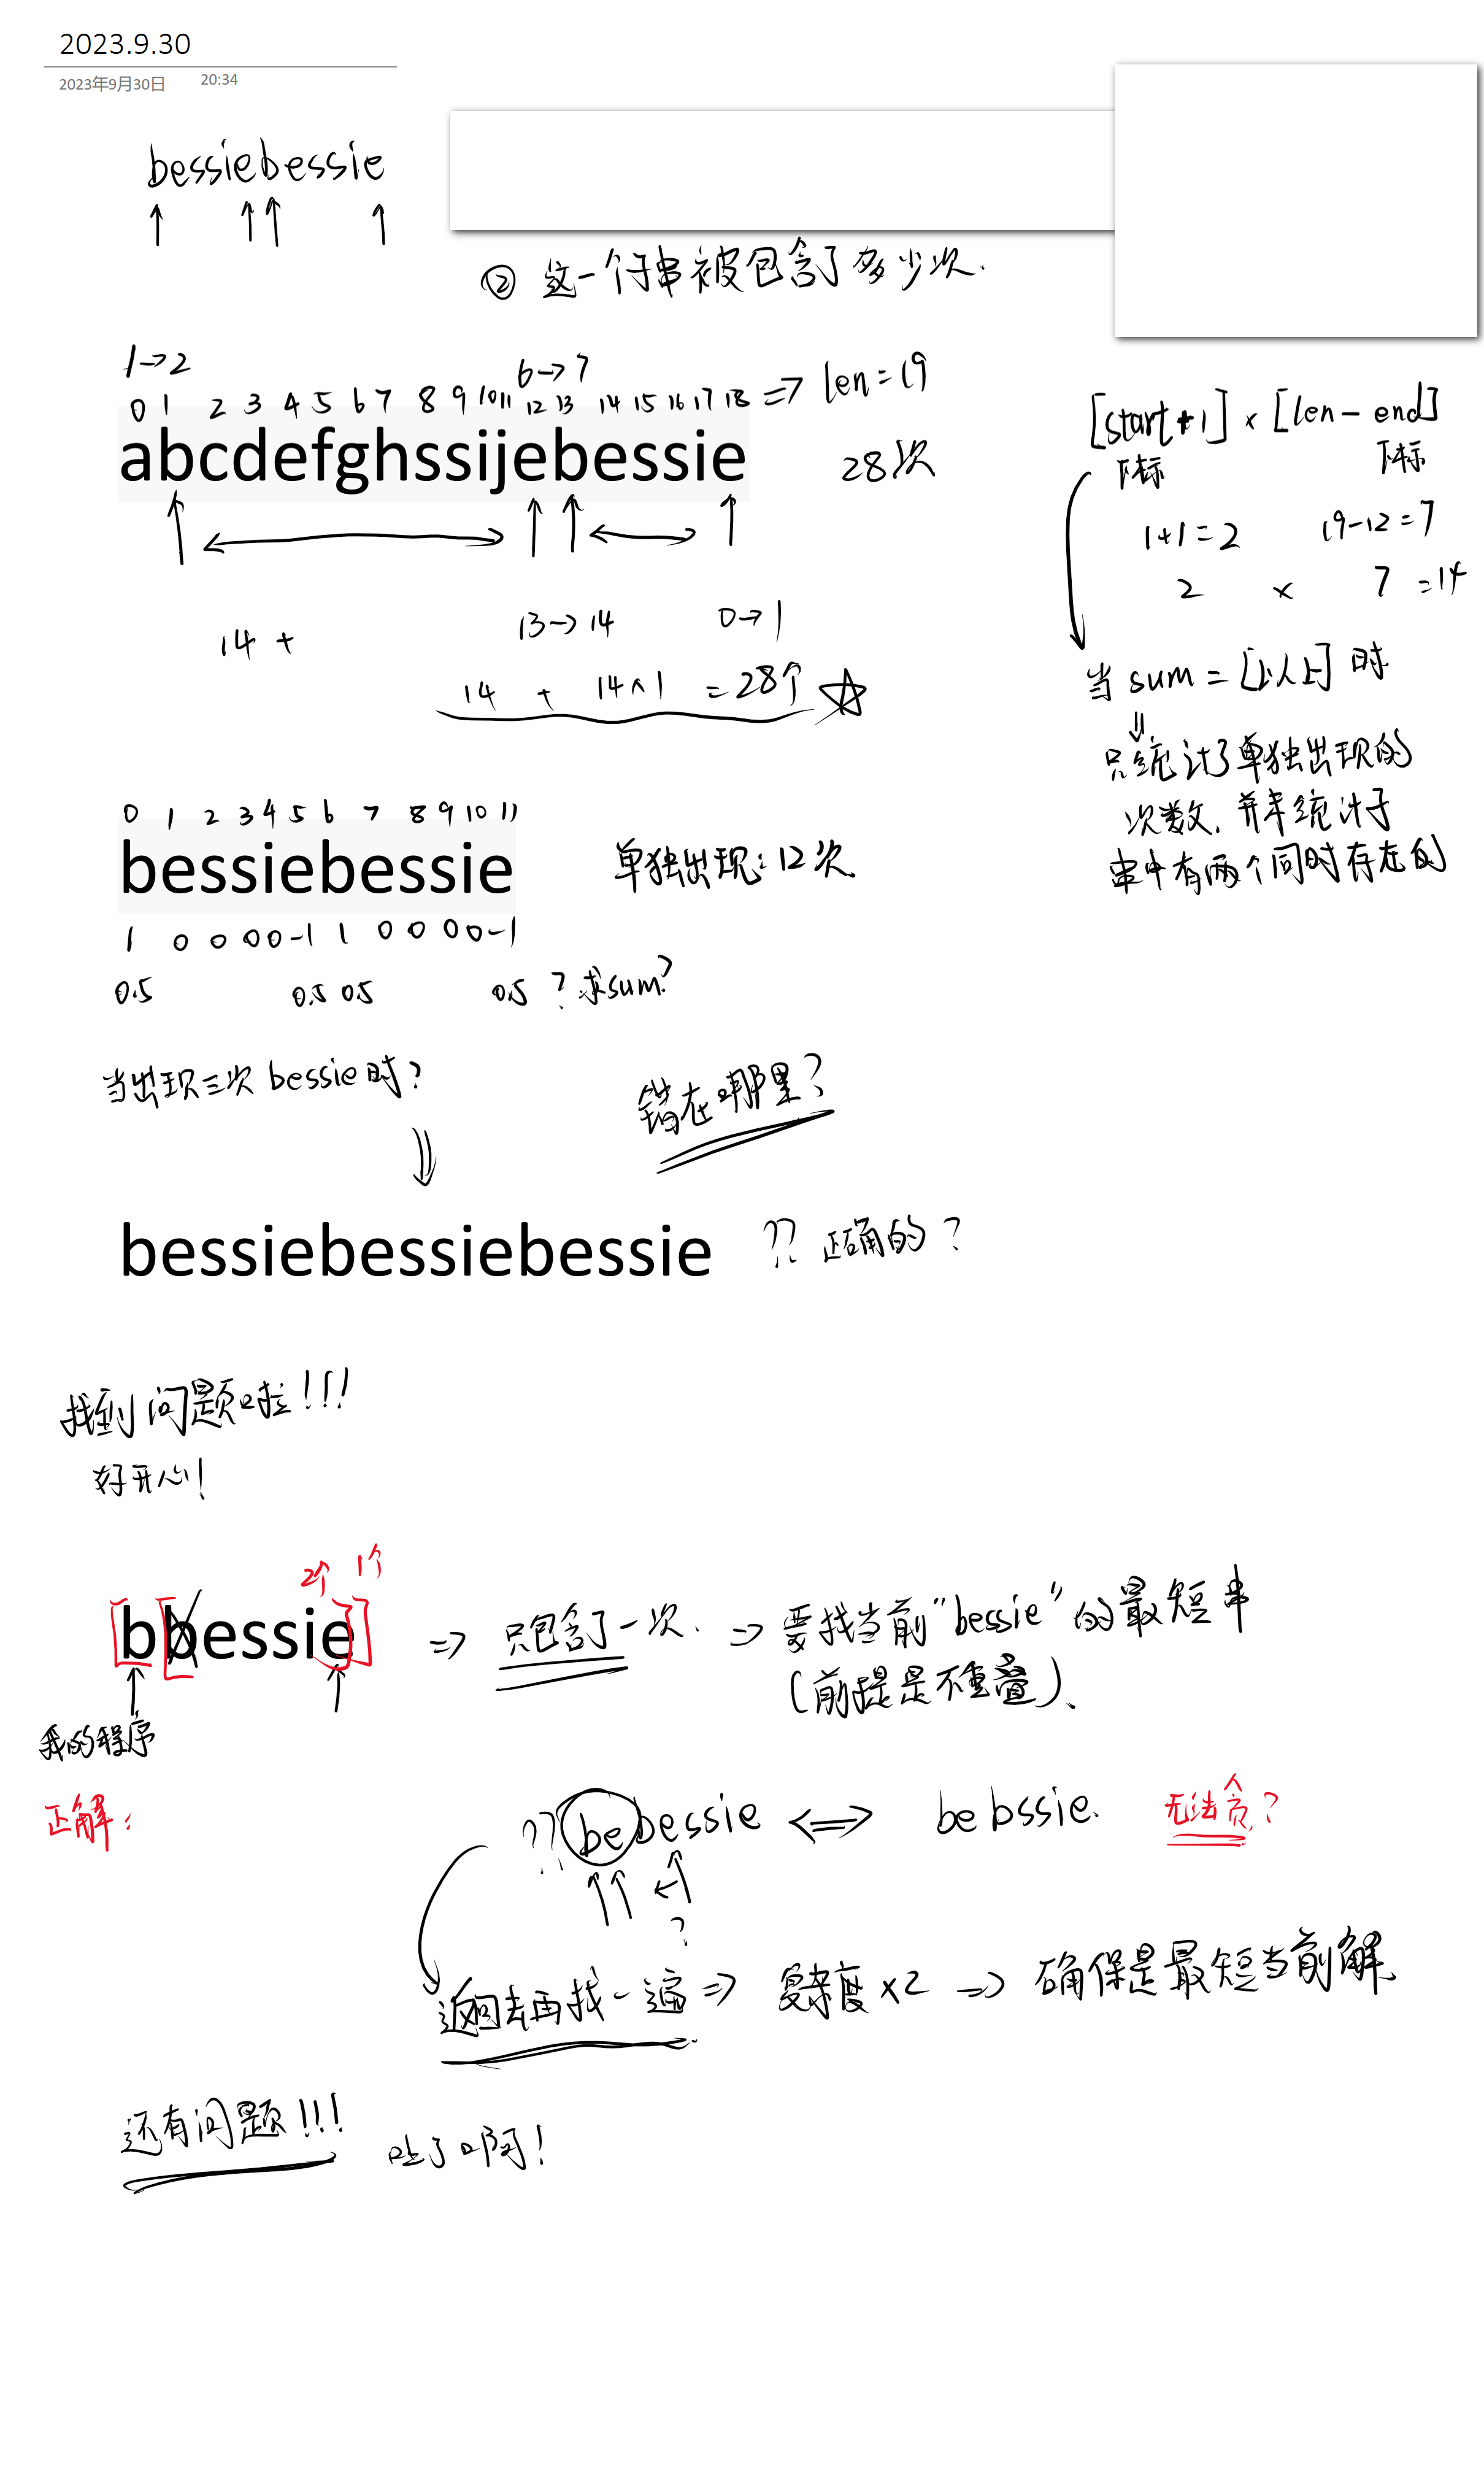 2023.9.30
2023年9月30日 20:34
bessiebessie
② 这一个子串被包含了多少次.
1→2 6→7
0 1 2 3 4 5 6 7 8 9 10 11 12 13 14 15 16 17 18 => len=19
abcdefghssijebessie 28次
14 + 13→14 0→1
14 + 14×1 =28个 ☆
[start+1] × [len-end]
下标 下标
1+1=2 19-12=7
2 × 7 =14
当 sum = [以上] 时
只统计了单独出现的
次数, 并未统计子
串中有两个同时存在的
0 1 2 3 4 5 6 7 8 9 10 11
bessiebessie 单独出现:12次.
1 0 0 0 0 -1 1 0 0 0 0 -1
0.5 0.5 0.5 0.5 ? 求sum?
当出现三次 bessie时?
错在哪里?
bessiebessiebessie ?? 正确的?
找到问题啦!!!
好开心!
2个 1个
bbessie => 只包含了一次. => 要找当前"bessie"的最短串
(前提是不重叠).
我的程序
正解:
?? bebessie <=> bebssie. 无法?
?
返回去再找一遍 => 复杂度×2 => 确保是最短当前解.
还有问题!!! 吐了啊!